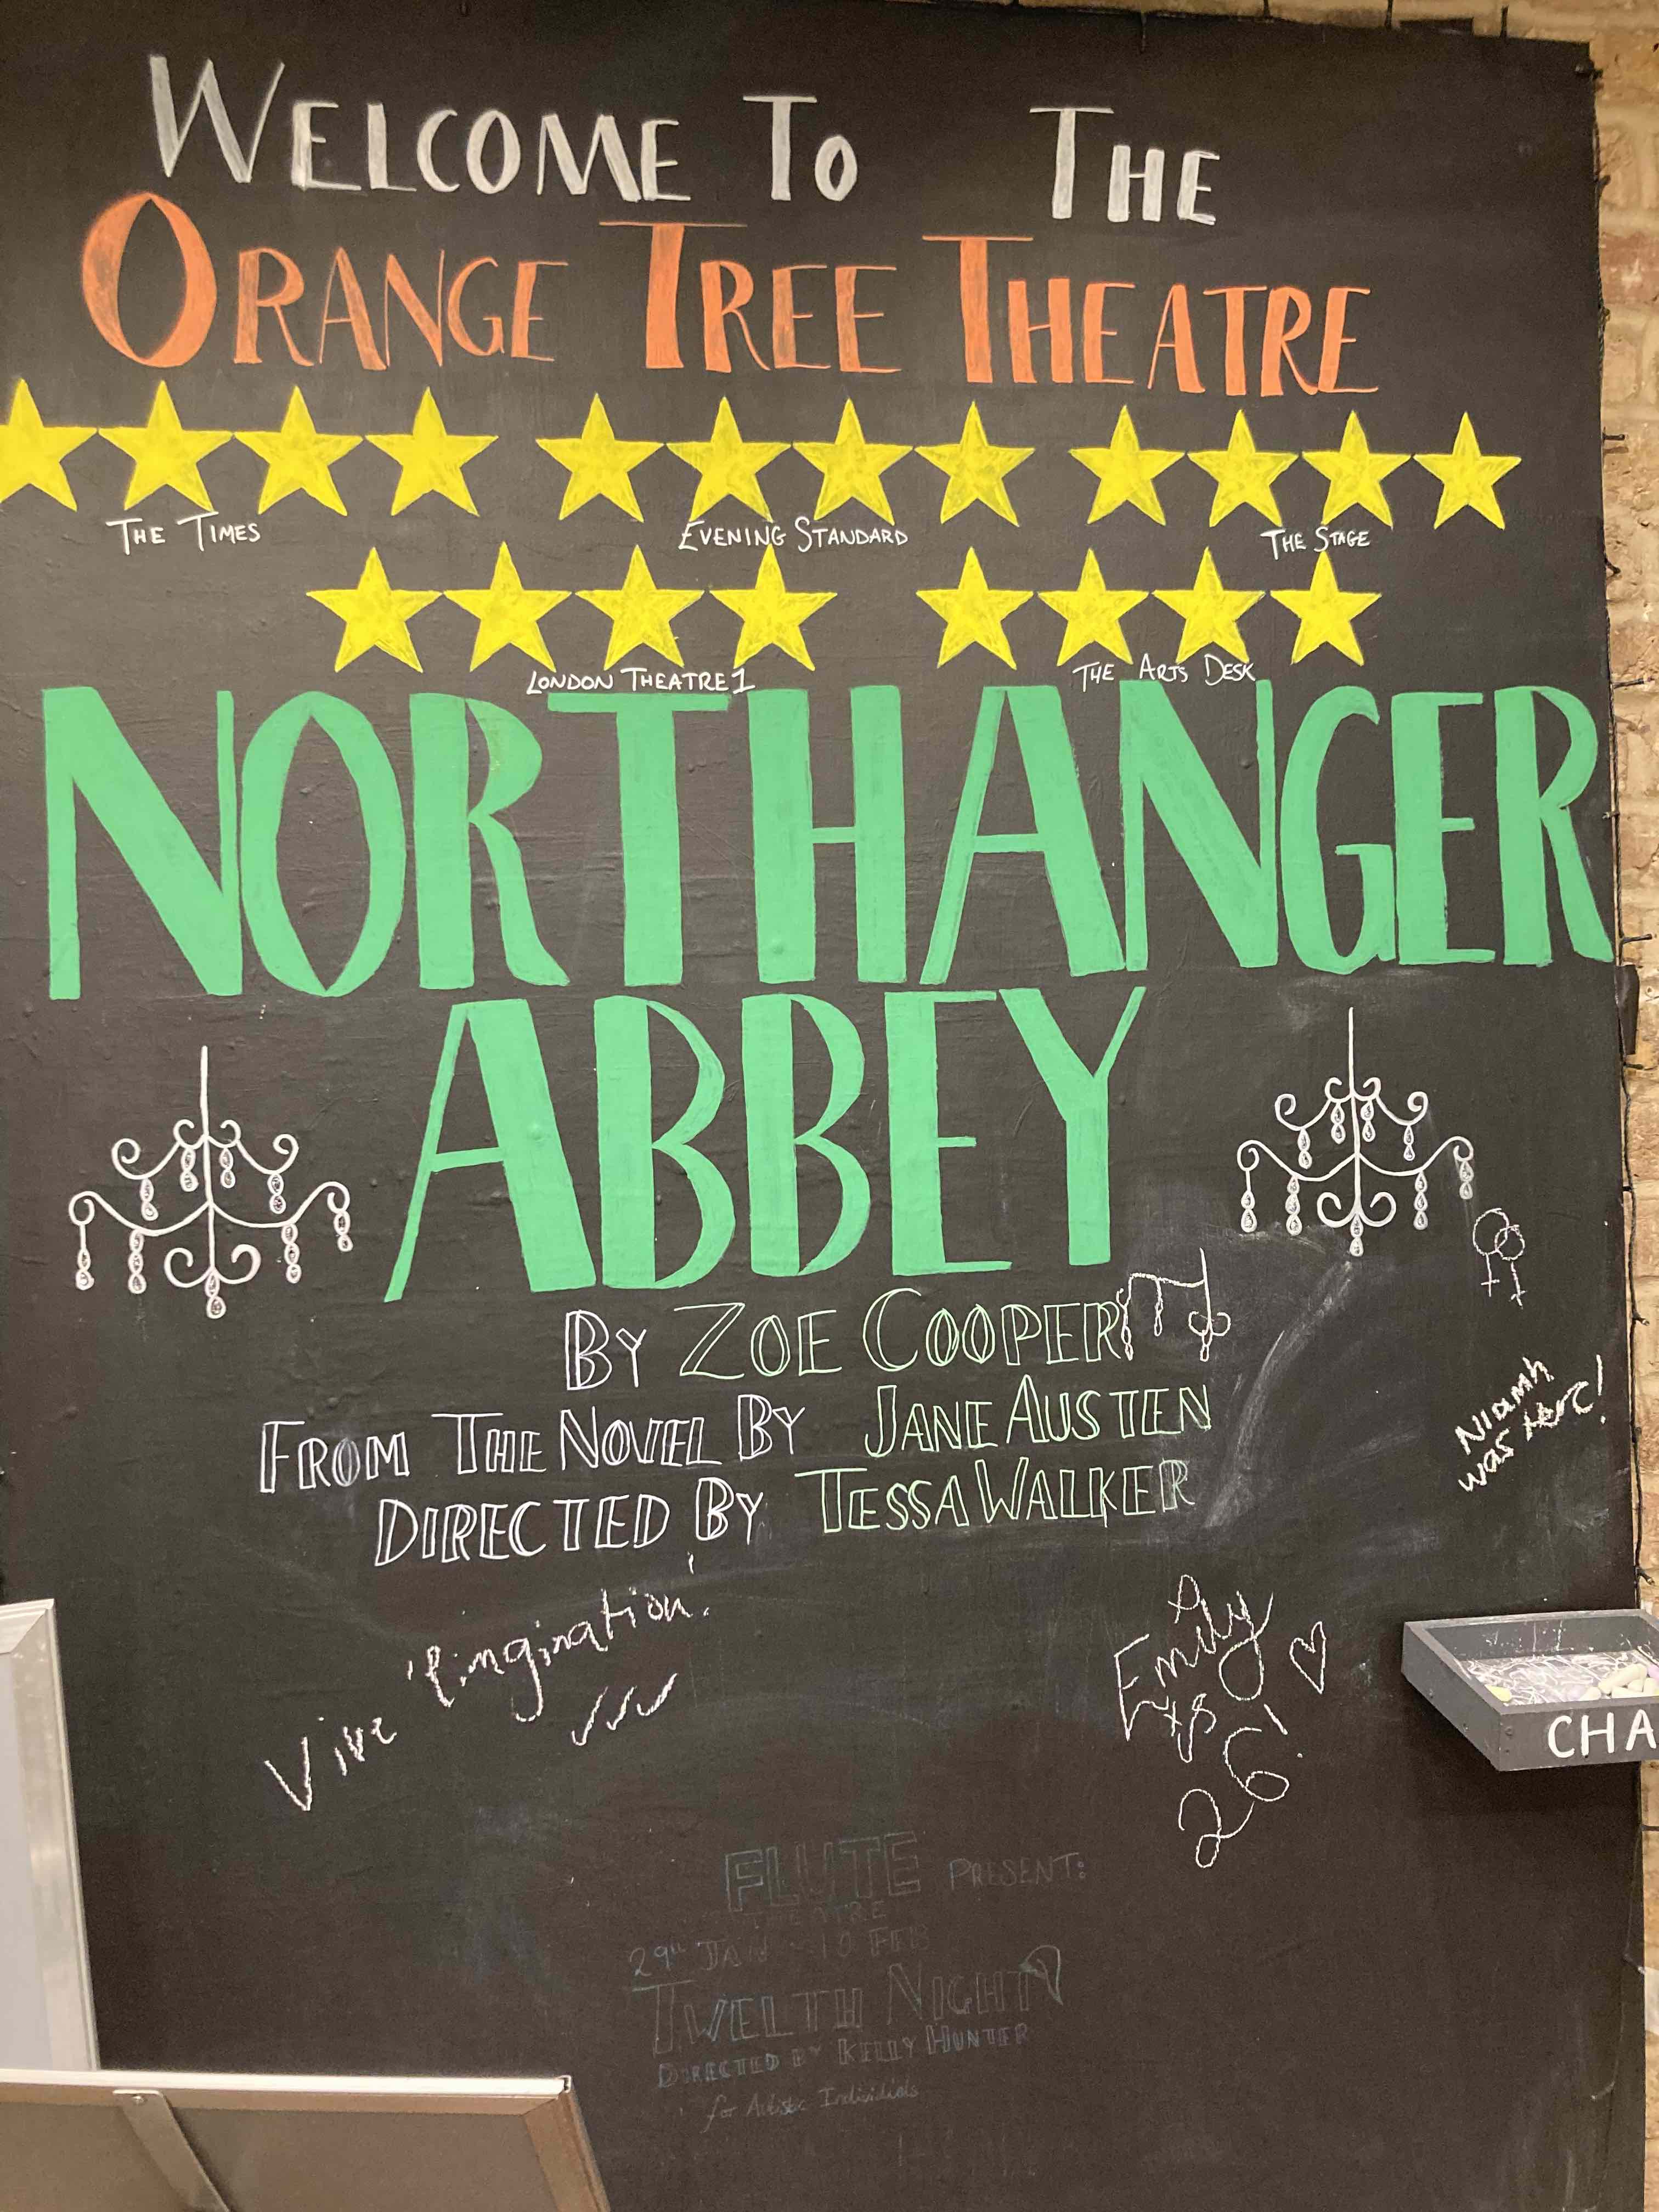 WELCOME TO THE
ORANGE TREE THEATRE
THE TIMES EVENING STANDARD THE STAGE
LONDON THEATRE1 THE ARTS DESK
NORTHANGER
ABBEY
BY ZOE COOPER
FROM THE NOVEL BY JANE AUSTEN
DIRECTED BY TESSA WALKER
Niamh
was here!
Vive l'imgination!
Emily
26!
FLUTE PRESENT:
THEATRE
29th JAN - 10 FEB
TWELTH NIGHT
DIRECTED BY KELLY HUNTER
for Autistic Individials
CHA